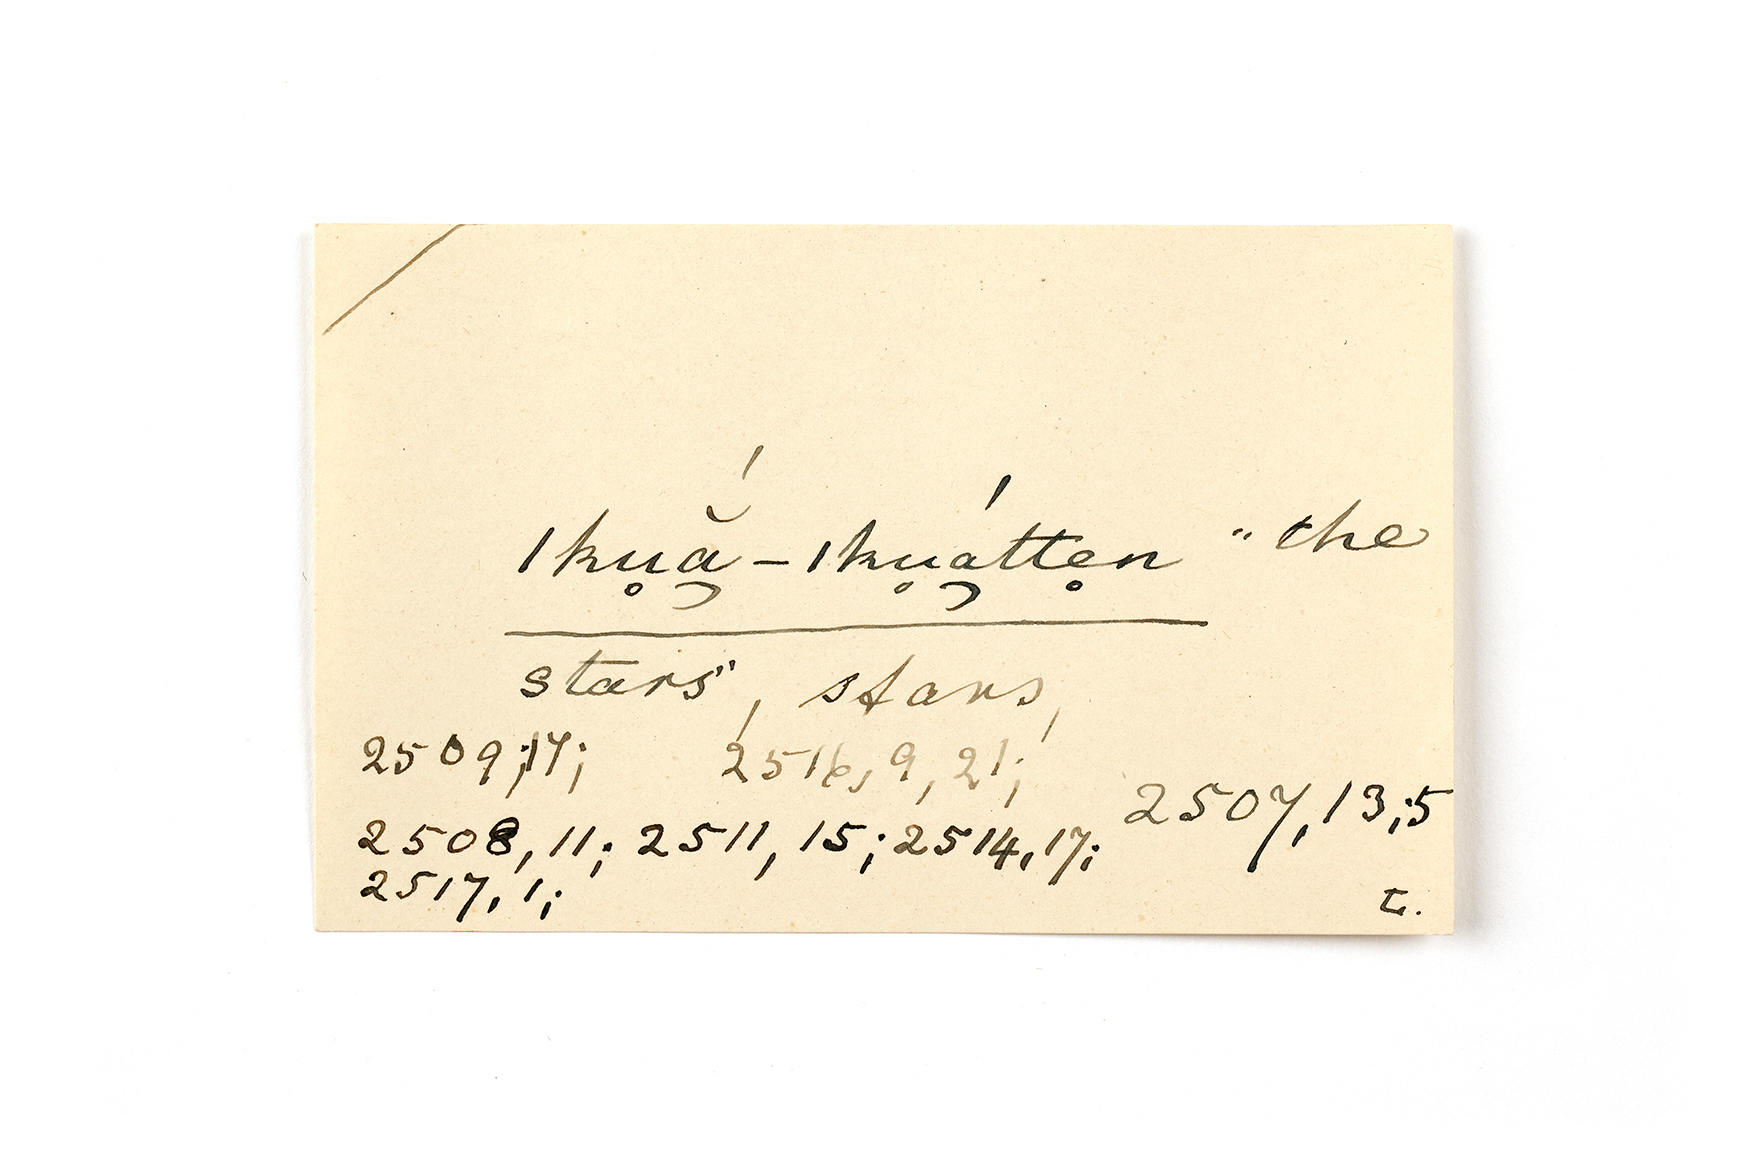 ǀku̥ā̯̆́-ǀku̥á̯tte̥n "the
stars", stars,
2509,17; 2516, 9, 21;
2507, 13; 5
2508, 11; 2511, 15; 2514, 17;
2517, 1;